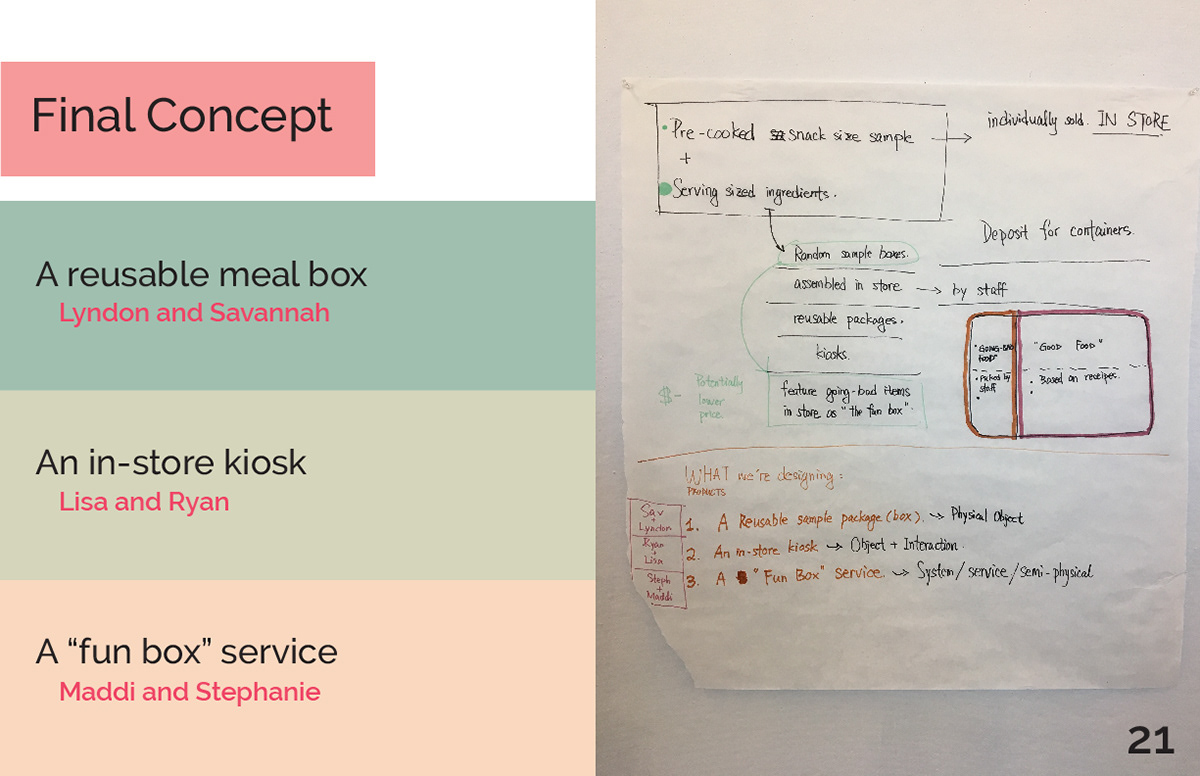 Final Concept
A reusable meal box
Lyndon and Savannah
An in-store kiosk
Lisa and Ryan
A “fun box” service
Maddi and Stephanie
Pre-cooked snack size sample
+
Serving sized ingredients.
individually sold. IN STORE
Deposit for containers.
Random sample boxes.
assembled in store
by staff
reusable packages.
kiosks.
feature going-bad items
in store as "the fun box".
$- Potentially
lower
price.
"GOING-BAD
FOOD"
"GOOD FOOD"
• Picked by
staff
•
• Based on receipes.
•
WHAT we're designing:
PRODUCTS
Sav
+
Lyndon
1. A Reusable sample package (box). Physical Object
Ryan
+
Lisa
2. An in-store kiosk Object + Interaction.
Steph
+
Maddi
3. A "Fun Box" Service. System/service/semi-physical
21